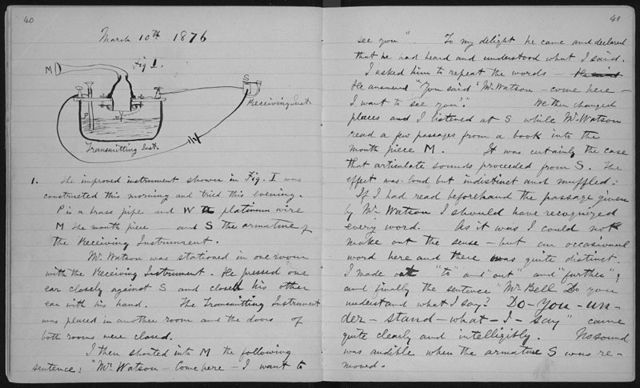 40
March 10th 1876
Fig 1.
M
S
Receiving Inst.
W
P
Transmitting Inst.
1. The improved instrument shown in Fig. I was
constructed this morning and tried this evening.
P is a brass pipe and W the platinum wire
M the mouth piece and S the armature of
the Receiving Instrument.
Mr. Watson was stationed in one room
with the Receiving Instrument. He pressed one
ear closely against S and closed his other
ear with his hand. The Transmitting Instrument
was placed in another room and the doors of
both rooms were closed.
I then shouted into M the following
sentence: "Mr. Watson — Come here — I want to
41
see you". To my delight he came and declared
that he had heard and understood what I said.
I asked him to repeat the words —
He answered "You said 'Mr. Watson — come here —
I want to see you'." We then changed
places and I listened at S while Mr. Watson
read a few passages from a book into the
mouth piece M. It was certainly the case
that articulate sounds proceeded from S. The
effect was loud but indistinct and muffled.
If I had read beforehand the passage given
by Mr. Watson I should have recognized
every word. As it was I could not
make out the sense — but an occasional
word here and there was quite distinct.
I made out "to" and "out" and "further";
and finally the sentence "Mr. Bell Do you
understand what I say? Do-you-un-
der-stand-what-I-say" came
quite clearly and intelligibly. No sound
was audible when the armature S was re-
moved.